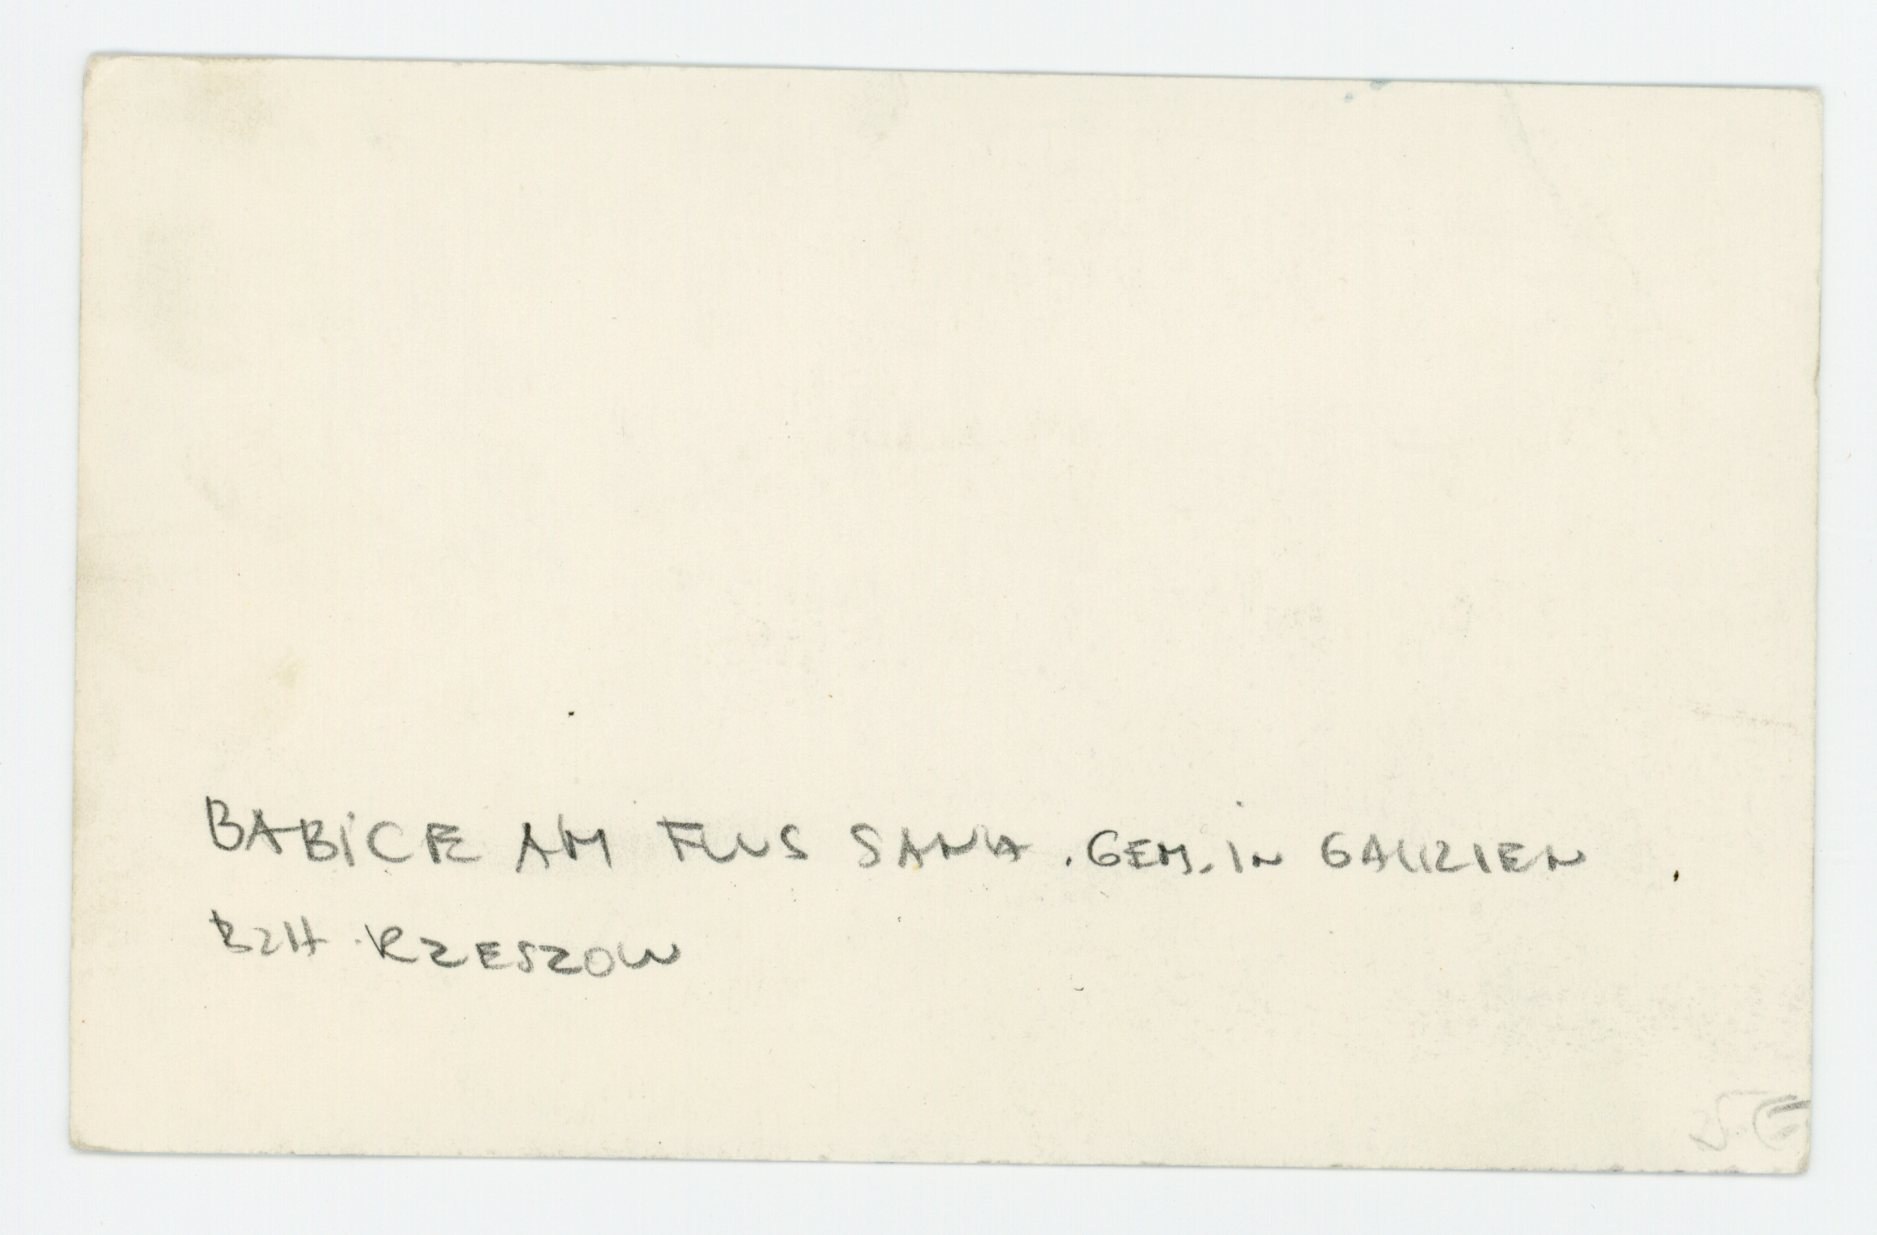 BABICE AM FLUS SANA . GEM. IN GALIZIEN
BZH RZESZOW
5.-€